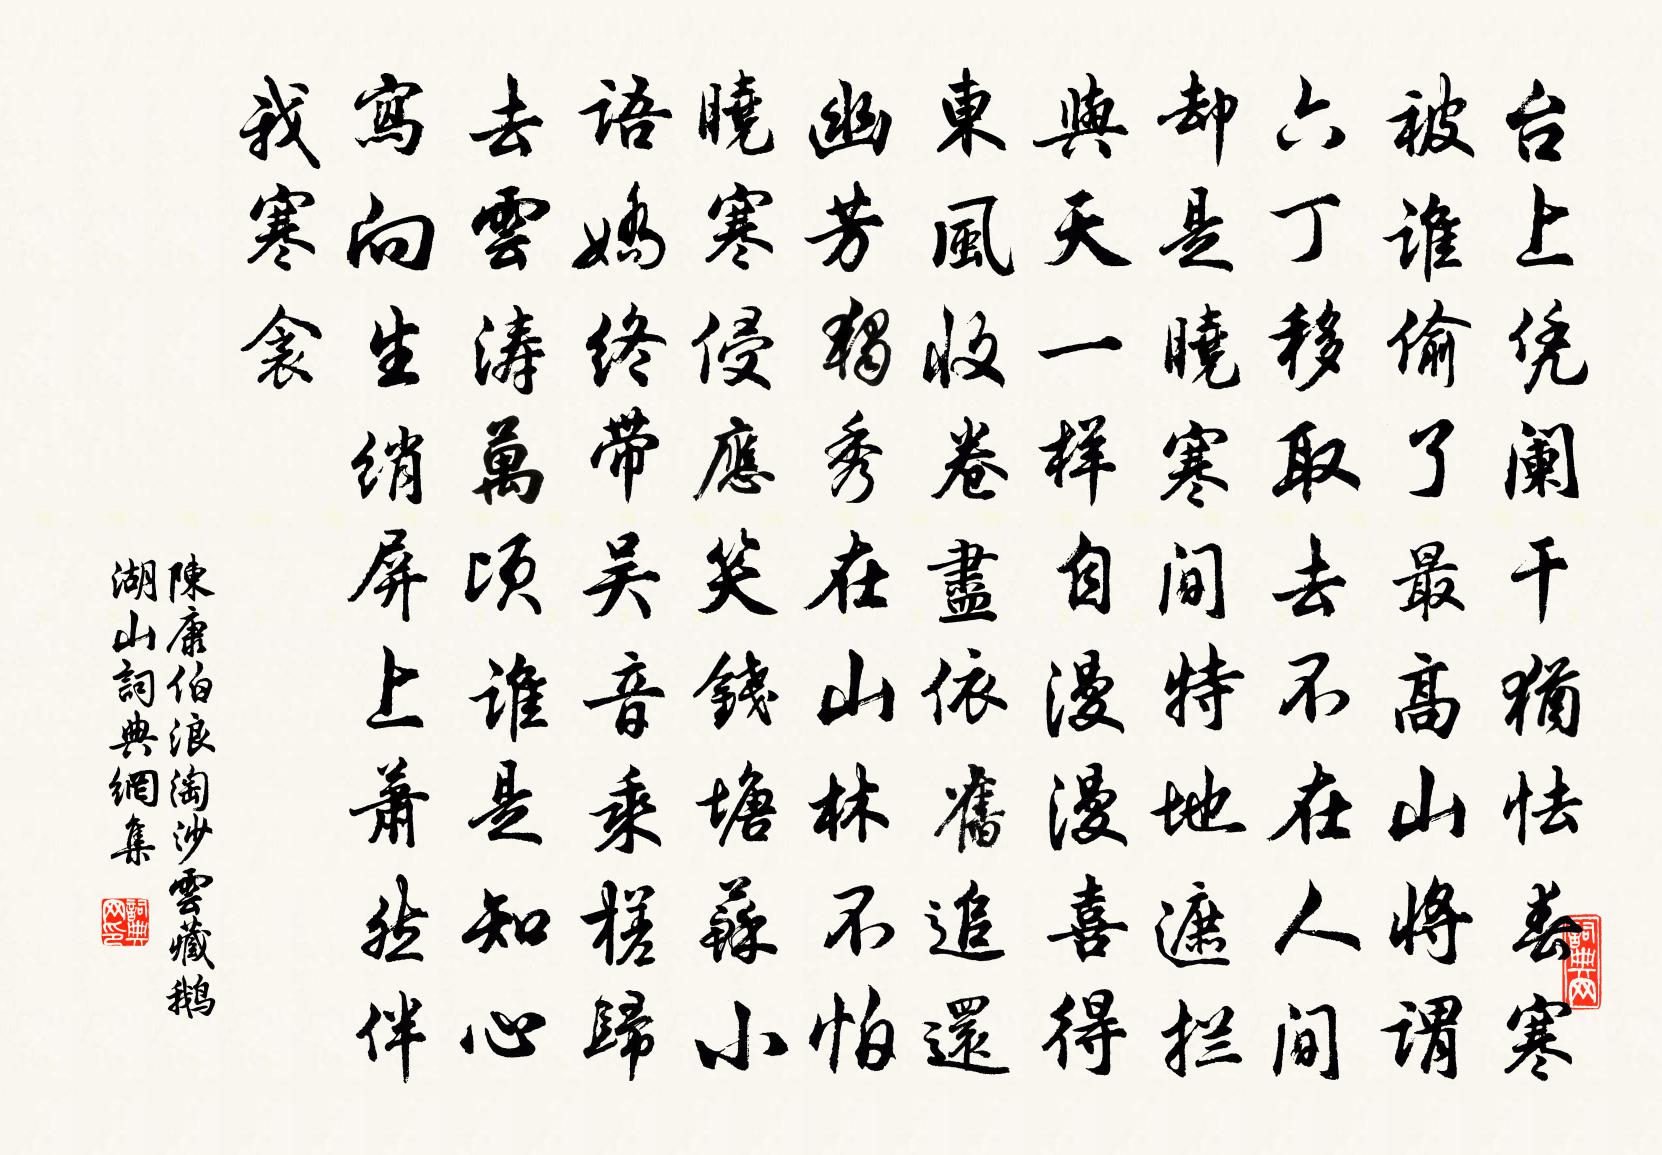 台上凭阑干猶怯春寒
被谁偷了最高山將谓
六丁移取去不在人间
却是曉寒间特地遮拦
與天一样自漫漫喜得
東風收卷盡依舊追還
幽芳獨秀在山林不怕
曉寒侵應笑錢塘蘇小
语嬌终带吴音乘槎歸
去雲濤萬顷谁是知心
寫向生绡屏上萧然伴
我寒衾
陳康伯浪淘沙雲藏鹅
湖山詞典網集
詞典网印
詞典网